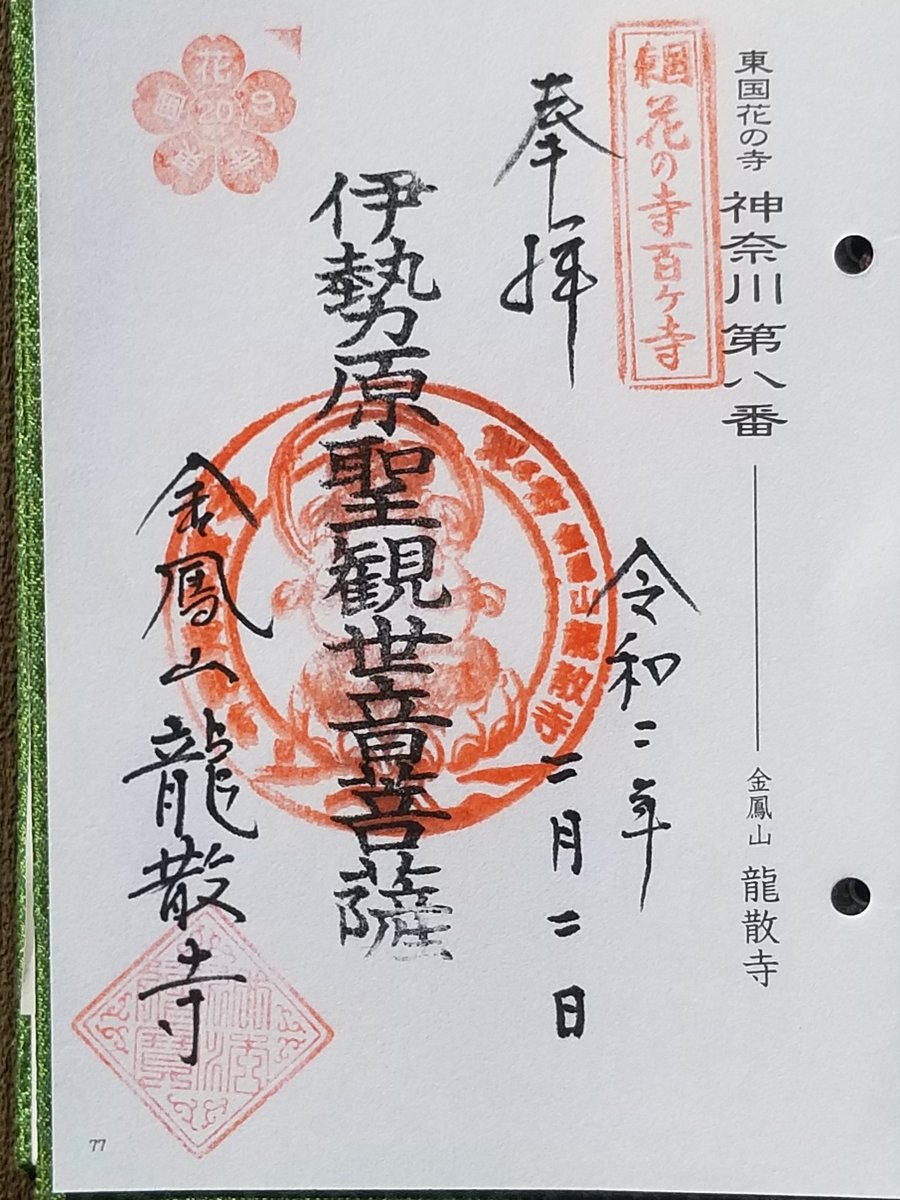 東国花の寺 神奈川第八番 金鳳山 龍散寺
東国花の寺百ケ寺
奉拝
令和二年
二月二日
伊勢原聖観世音菩薩
金鳳山龍散寺
金鳳山龍散寺
花
20
77